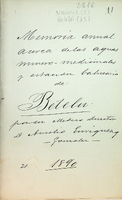 Memoria anual
acerca de las aguas
minero-medicinales
y estacion balnearia
de
Betelu
por su Medico director
D. Aurelio Enriquez y
Gonzalez
1890